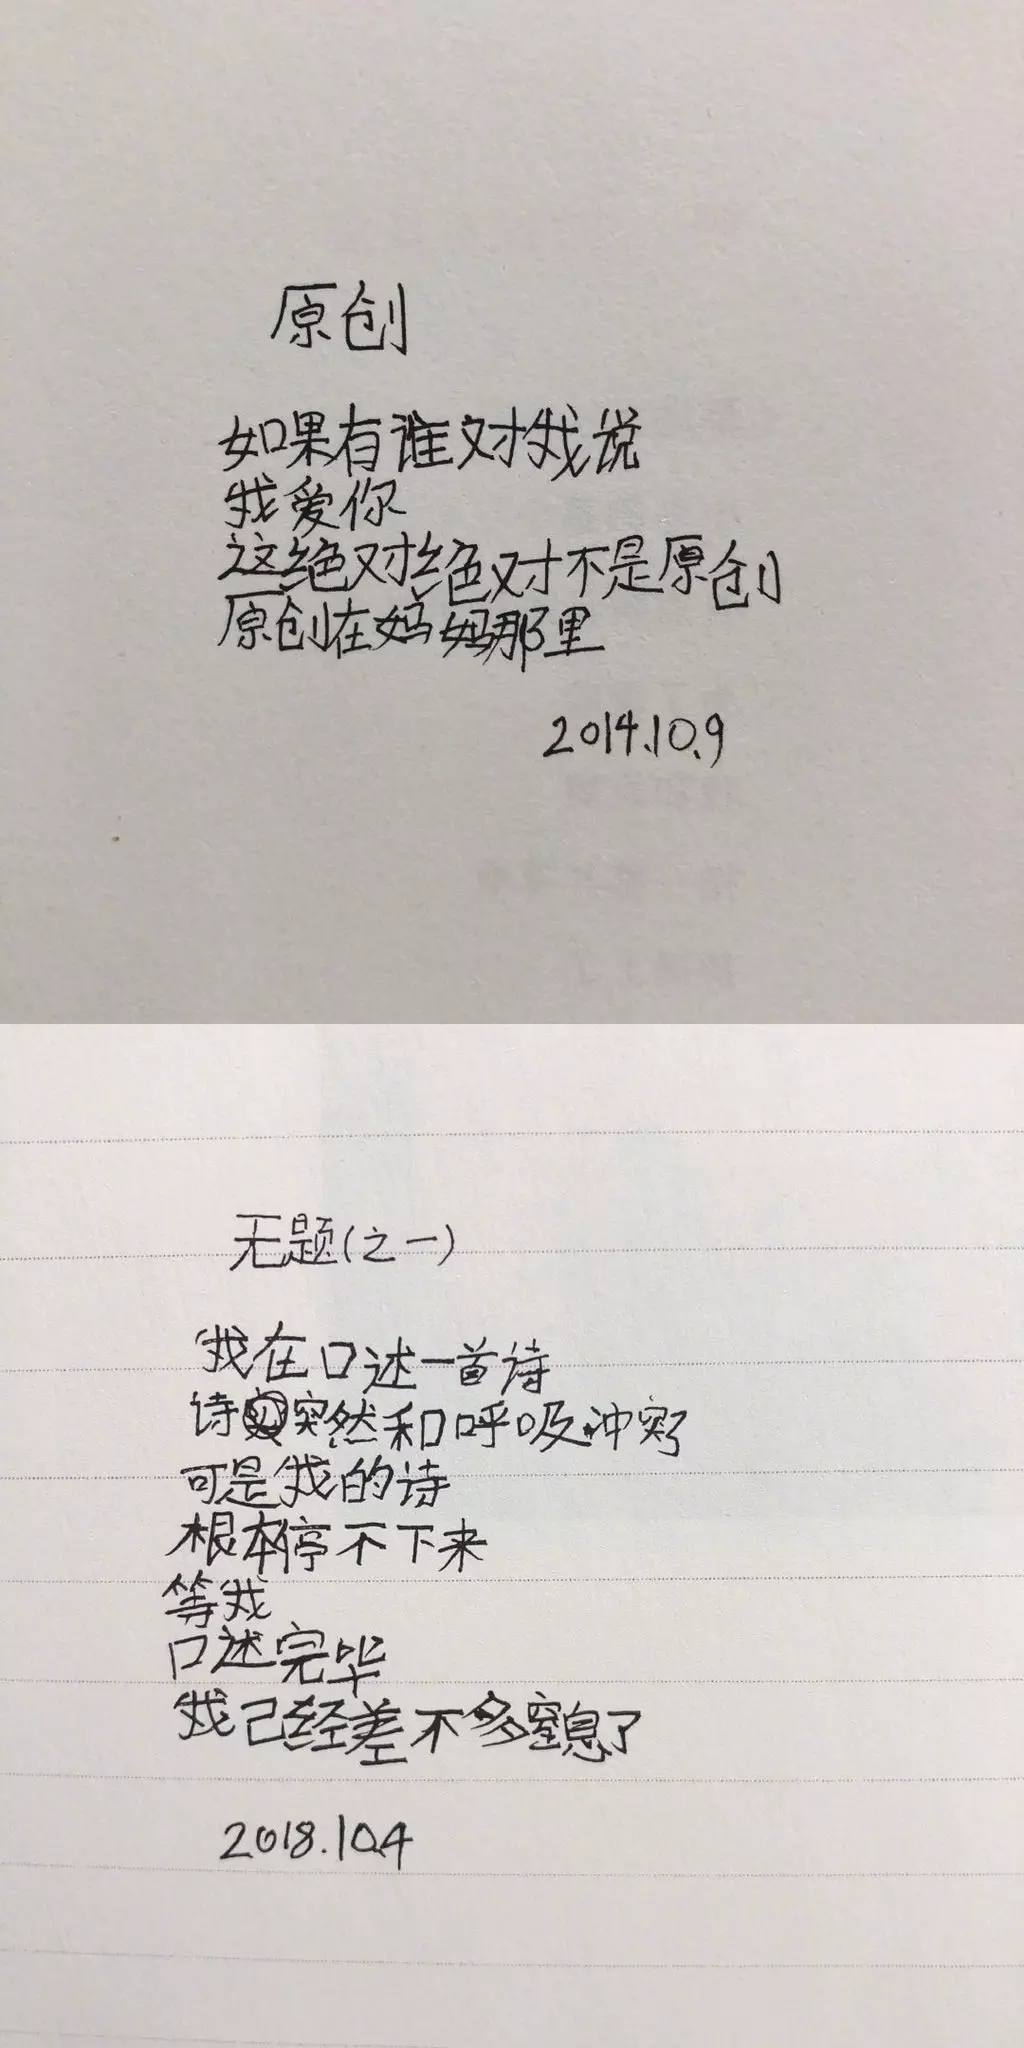 原创
如果有谁对我说
我爱你
这绝对绝对不是原创
原创在妈妈那里
2014.10.9
无题(之一)
我在口述一首诗
诗突然和呼吸冲突了
可是我的诗
根本停不下来
等我
口述完毕
我已经差不多窒息了
2018.10.4